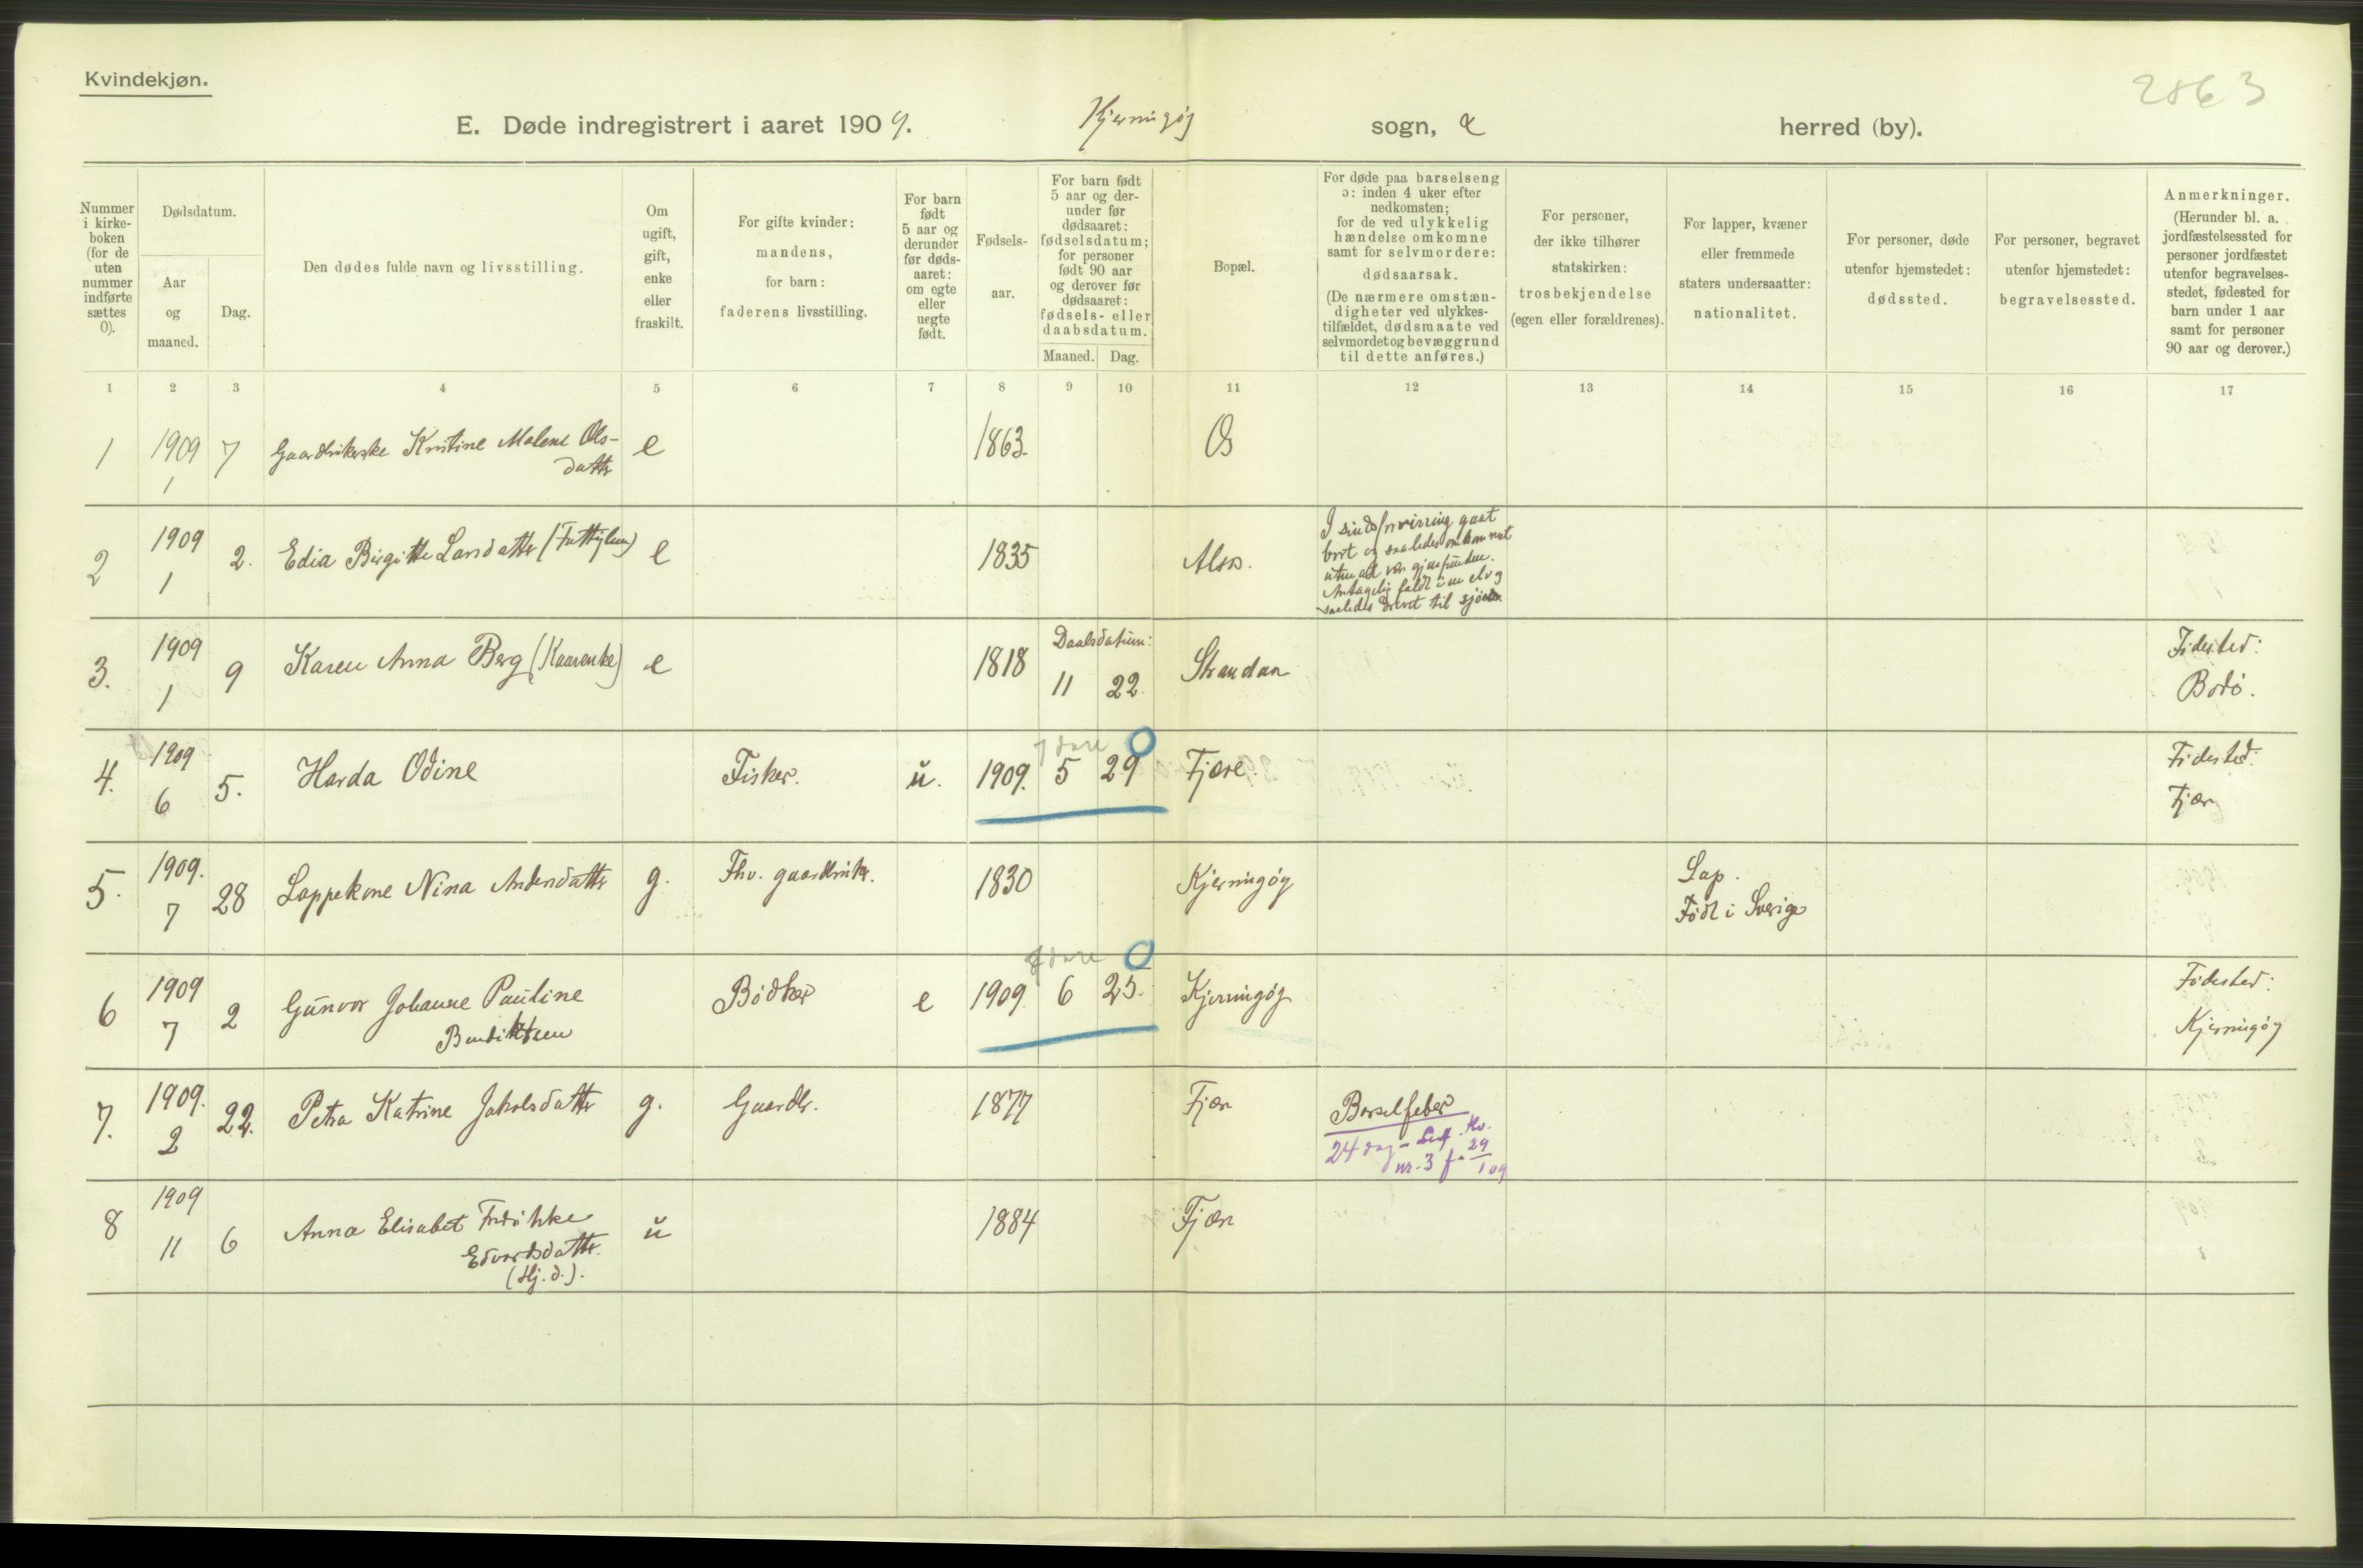 Kvindekjøn.
2863
E. Døde indregistrert i aaret 1909. Kjerringøy sogn, & herred (by).
Nummer i kirke-boken (for de uten nummer indførte sættes 0).
Dødsdatum.
Aar og maaned.
Dag.
Den dødes fulde navn og livsstilling.
Om ugift, gift, enke eller fraskilt.
For gifte kvinder: mandens, for barn: faderens livsstilling.
For barn født 5 aar og derunder før døds-aaret: om egte eller uegte født.
Fødsels-aar.
For barn født 5 aar og der-under før dødsaaret: fødselsdatum; for personer født 90 aar og derover før dødsaaret: fødsels- eller daabsdatum.
Maaned. Dag.
Bopæl.
For døde paa barselseng ɔ: inden 4 uker efter nedkomsten; for de ved ulykkelig hændelse omkomne samt for selvmordere: dødsaarsak. (De nærmere omstæn-digheter ved ulykkes-tilfældet, dødsmaate ved selvmordet og bevæggrund til dette anføres.)
For personer, der ikke tilhører statskirken: trosbekjendelse (egen eller forældrenes).
For lapper, kvæner eller fremmede staters undersaatter: nationalitet.
For personer, døde utenfor hjemstedet: dødssted.
For personer, begravet utenfor hjemstedet: begravelsessted.
Anmerkninger. (Herunder bl. a. jordfæstelsessted for personer jordfæstet utenfor begravelses-stedet, fødested for barn under 1 aar samt for personer 90 aar og derover.)
1 2 3 4 5 6 7 8 9 10 11 12 13 14 15 16 17
1 1909 1 7 Kristine Malene Ols-datter e 1863. Os
2 1909 1 2. Edia Birgitte Larsdatter e 1835 Alsos.
I sindsforvirring gaat
bort og saaledes omkommet
uten at være gjenfunden.
Antagelig faldt i en elv og
saaledes drevet til sjøen
3. 1909 1 9 Karen Anna Berg e 1818 Daabsdatum: 11 22. Strandan Fødested: Bodø.
4. 1909 6 5. Harda Odine Fisker. u. 1909. 5 29 Fjære. Fødested: Fjær
5. 1909. 7 28 Lappekone Nina Andersdatter g. Fhv. gaardbruker. 1830 Kjerringøy Lap. Født i Sverige
6 1909 7 2 Gunvor Johanne Pauline Bendiktsen Bødker e 1909. 6 25. Kjerringøy Fødested: Kjerringøy
7. 1909. 2 22. Petra Katrine Jakobsdatter g. Gaardbr. 1877 Fjær Barselfeber
24 dag - Lef. Kv.
nr. 3 f. 29/1 09
8 1909 11 6 Anna Elisabet Fredrikke Edvardsdatter (Hj. d.). u 1884 Fjær